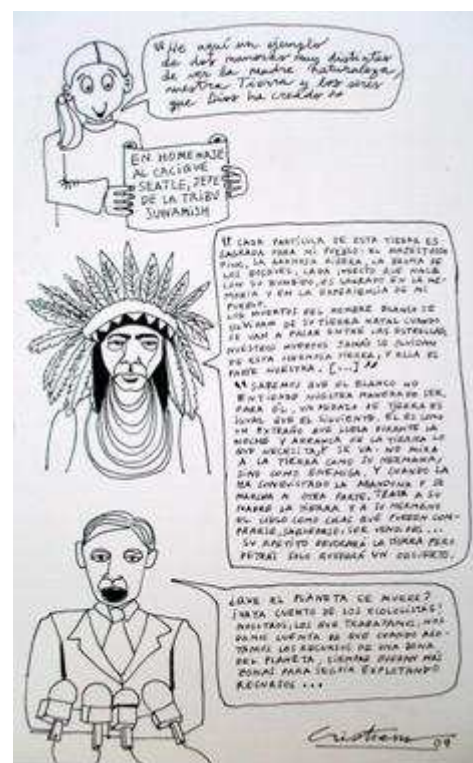 "He aquí un ejemplo
de dos maneras muy distintas
de ver la madre naturaleza,
nuestra Tierra y los seres
que Dios ha creado"
EN HOMENAJE
AL CACIQUE
SEATLE, JEFE
DE LA TRIBU
SUWAMISH
"CADA PARTÍCULA DE ESTA TIERRA ES
SAGRADA PARA MI PUEBLO: EL MAJESTUOSO
PINO, LA ARENOSA RIBERA, LA BRUMA DE
LOS BOSQUES, CADA INSECTO QUE NACE
CON SU ZUMBIDO, ES SAGRADO EN LA ME-
MORIA Y EN LA EXPERIENCIA DE MI
PUEBLO.
LOS MUERTOS DEL HOMBRE BLANCO SE
OLVIDAN DE SU TIERRA NATAL CUANDO
SE VAN A PASAR ENTRE LAS ESTRELLAS,
NUESTROS MUERTOS JAMÁS SE OLVIDAN
DE ESTA HERMOSA TIERRA, Y ELLA ES
PARTE NUESTRA. [...]"
"SABEMOS QUE EL BLANCO NO
ENTIENDE NUESTRA MANERA DE SER.
PARA ÉL, UN PEDAZO DE TIERRA ES
IGUAL QUE EL SIGUIENTE. ÉL ES COMO
UN EXTRAÑO QUE LLEGA DURANTE LA
NOCHE Y ARRANCA DE LA TIERRA LO
QUE NECESITA, Y SE VA. NO MIRA
A LA TIERRA COMO SU HERMANA,
SINO COMO ENEMIGA, Y CUANDO LA
HA CONQUISTADO LA ABANDONA Y SE
MARCHA A OTRA PARTE. TRATA A SU
MADRE LA TIERRA Y A SU HERMANO
EL CIELO COMO COSAS QUE PUEDEN COM-
PRARSE, SAQUEARSE, SER VENDIDAS...
SU APETITO DEVORARÁ LA TIERRA PERO
DETRÁS SOLO QUEDARÁ UN DESIERTO.
¿QUE EL PLANETA SE MUERE?
¡VAYA CUENTO DE LOS ECOLOGISTAS!
NOSOTROS, LOS QUE TRABAJAMOS, NOS
DAMOS CUENTA DE QUE CUANDO AGO-
TAMOS LOS RECURSOS DE UNA ZONA
DEL PLANETA, SIEMPRE QUEDAN MÁS
ZONAS PARA SEGUIR EXPLOTANDO
RECURSOS...
09